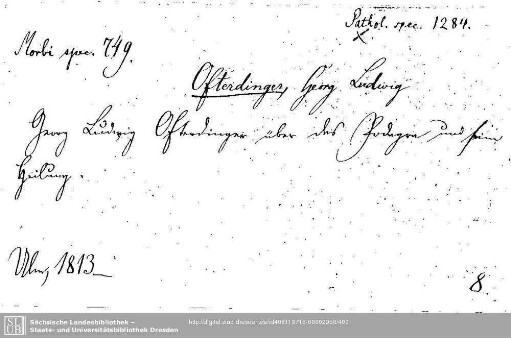 Pathol. spec. 1284.
Morbi spec. 749.
Ofterdinger, Georg Ludwig
Georg Ludwig Ofterdinger über das Podagra und seine
Heilung.
Ulm, 1813
8.
SLUB
Sächsische Landesbibliothek –
Staats- und Universitätsbibliothek Dresden